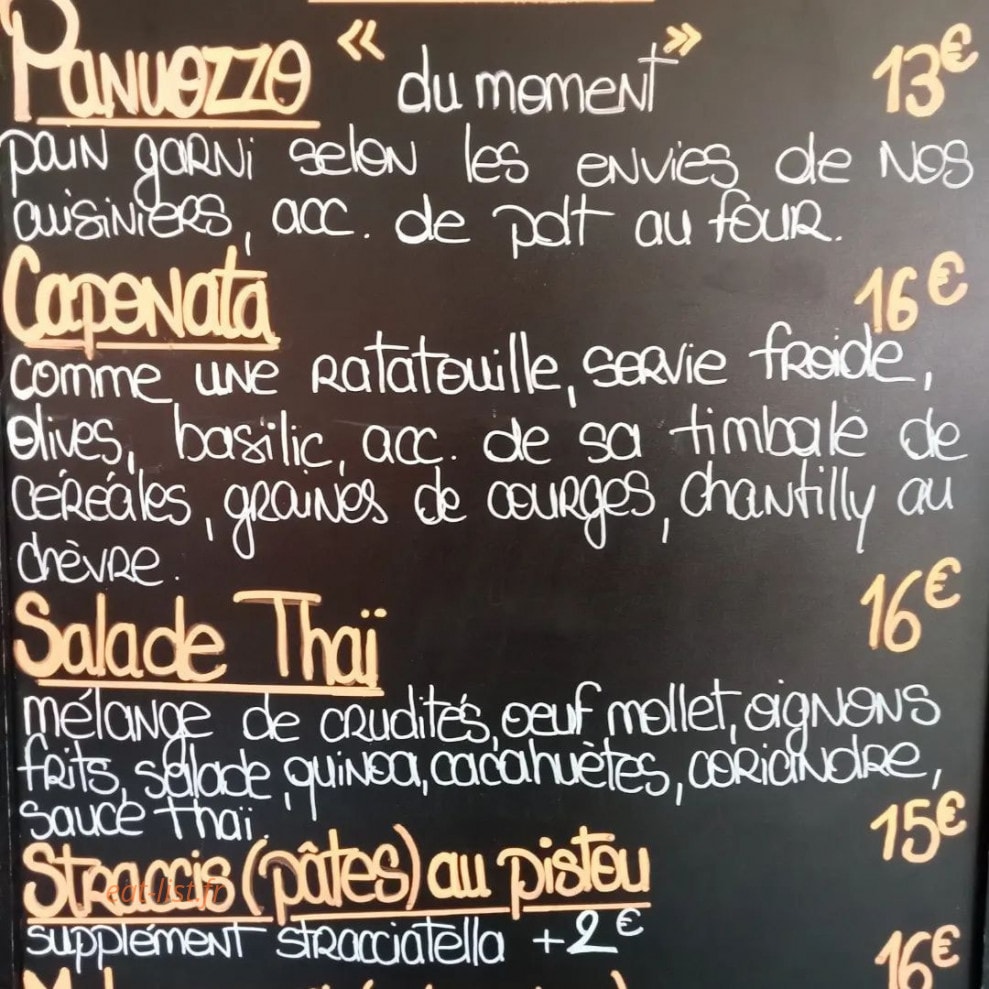 Panuozzo « du moment » 13€
pain garni selon les envies de nos
cuisiniers, acc. de pdt au four.
Caponata 16€
comme une ratatouille, servie froide,
olives, basilic, acc. de sa timbale de
céréales, graines de courges, chantilly au
chèvre.
Salade Thaï 16€
mélange de crudités, oeuf mollet, oignons
frits, salade, quinoa, cacahuètes, coriandre,
sauce thaï.
Straccis (pâtes) au pistou 15€
eat-list.fr
supplément stracciatella +2€
16€